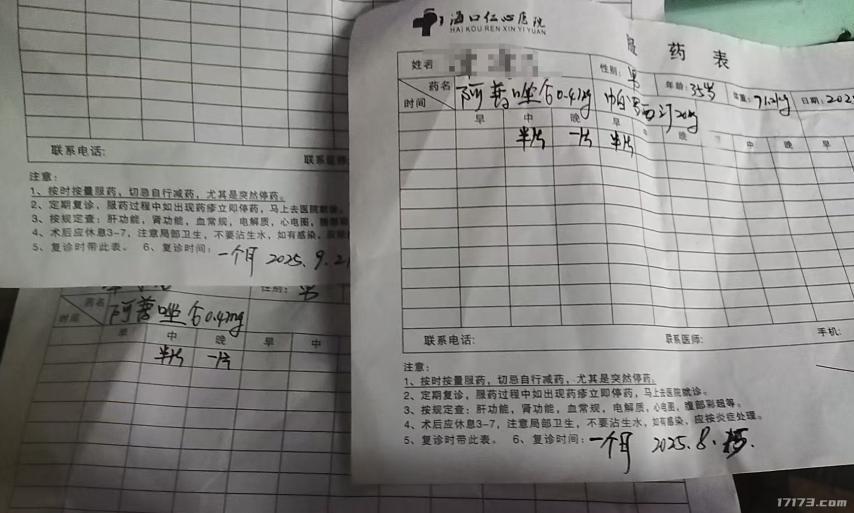 海口仁心医院
HAI KOU REN XIN YI YUAN
服 药 表
姓名
性别: 男
年龄: 35岁
体重: 71.2kg
日期: 202
药名
时间
阿普唑仑0.4mg
帕罗西汀20mg
早 中 晚 早 中 晚 早 中 晚 早
半片 一片 半片
联系电话:
联系医师:
手机:
注意:
1、按时按量服药,切忌自行减药,尤其是突然停药。
2、定期复诊,服药过程中如出现药疹立即停药,马上去医院就诊。
3、按规定查:肝功能,肾功能,血常规,电解质,心电图,腹部彩超等。
4、术后应休息3-7,注意局部卫生,不要沾生水,如有感染,应按炎症处理。
5、复诊时带此表。 6、复诊时间: 一个月 2025.8.
联系电话:
联系医师
注意:
1、按时按量服药,切忌自行减药,尤其是突然停药。
2、定期复诊,服药过程中如出现药疹立即停药,马上去医院就诊。
3、按规定查:肝功能,肾功能,血常规,电解质,心电图,腹部
4、术后应休息3-7,注意局部卫生,不要沾生水,如有感染,应按
5、复诊时带此表。 6、复诊时间: 一个月 2025.9.21
性别: 男
药名
时间
阿普唑仑0.4mg
早 中 晚 早 中
半片 一片
17173.com